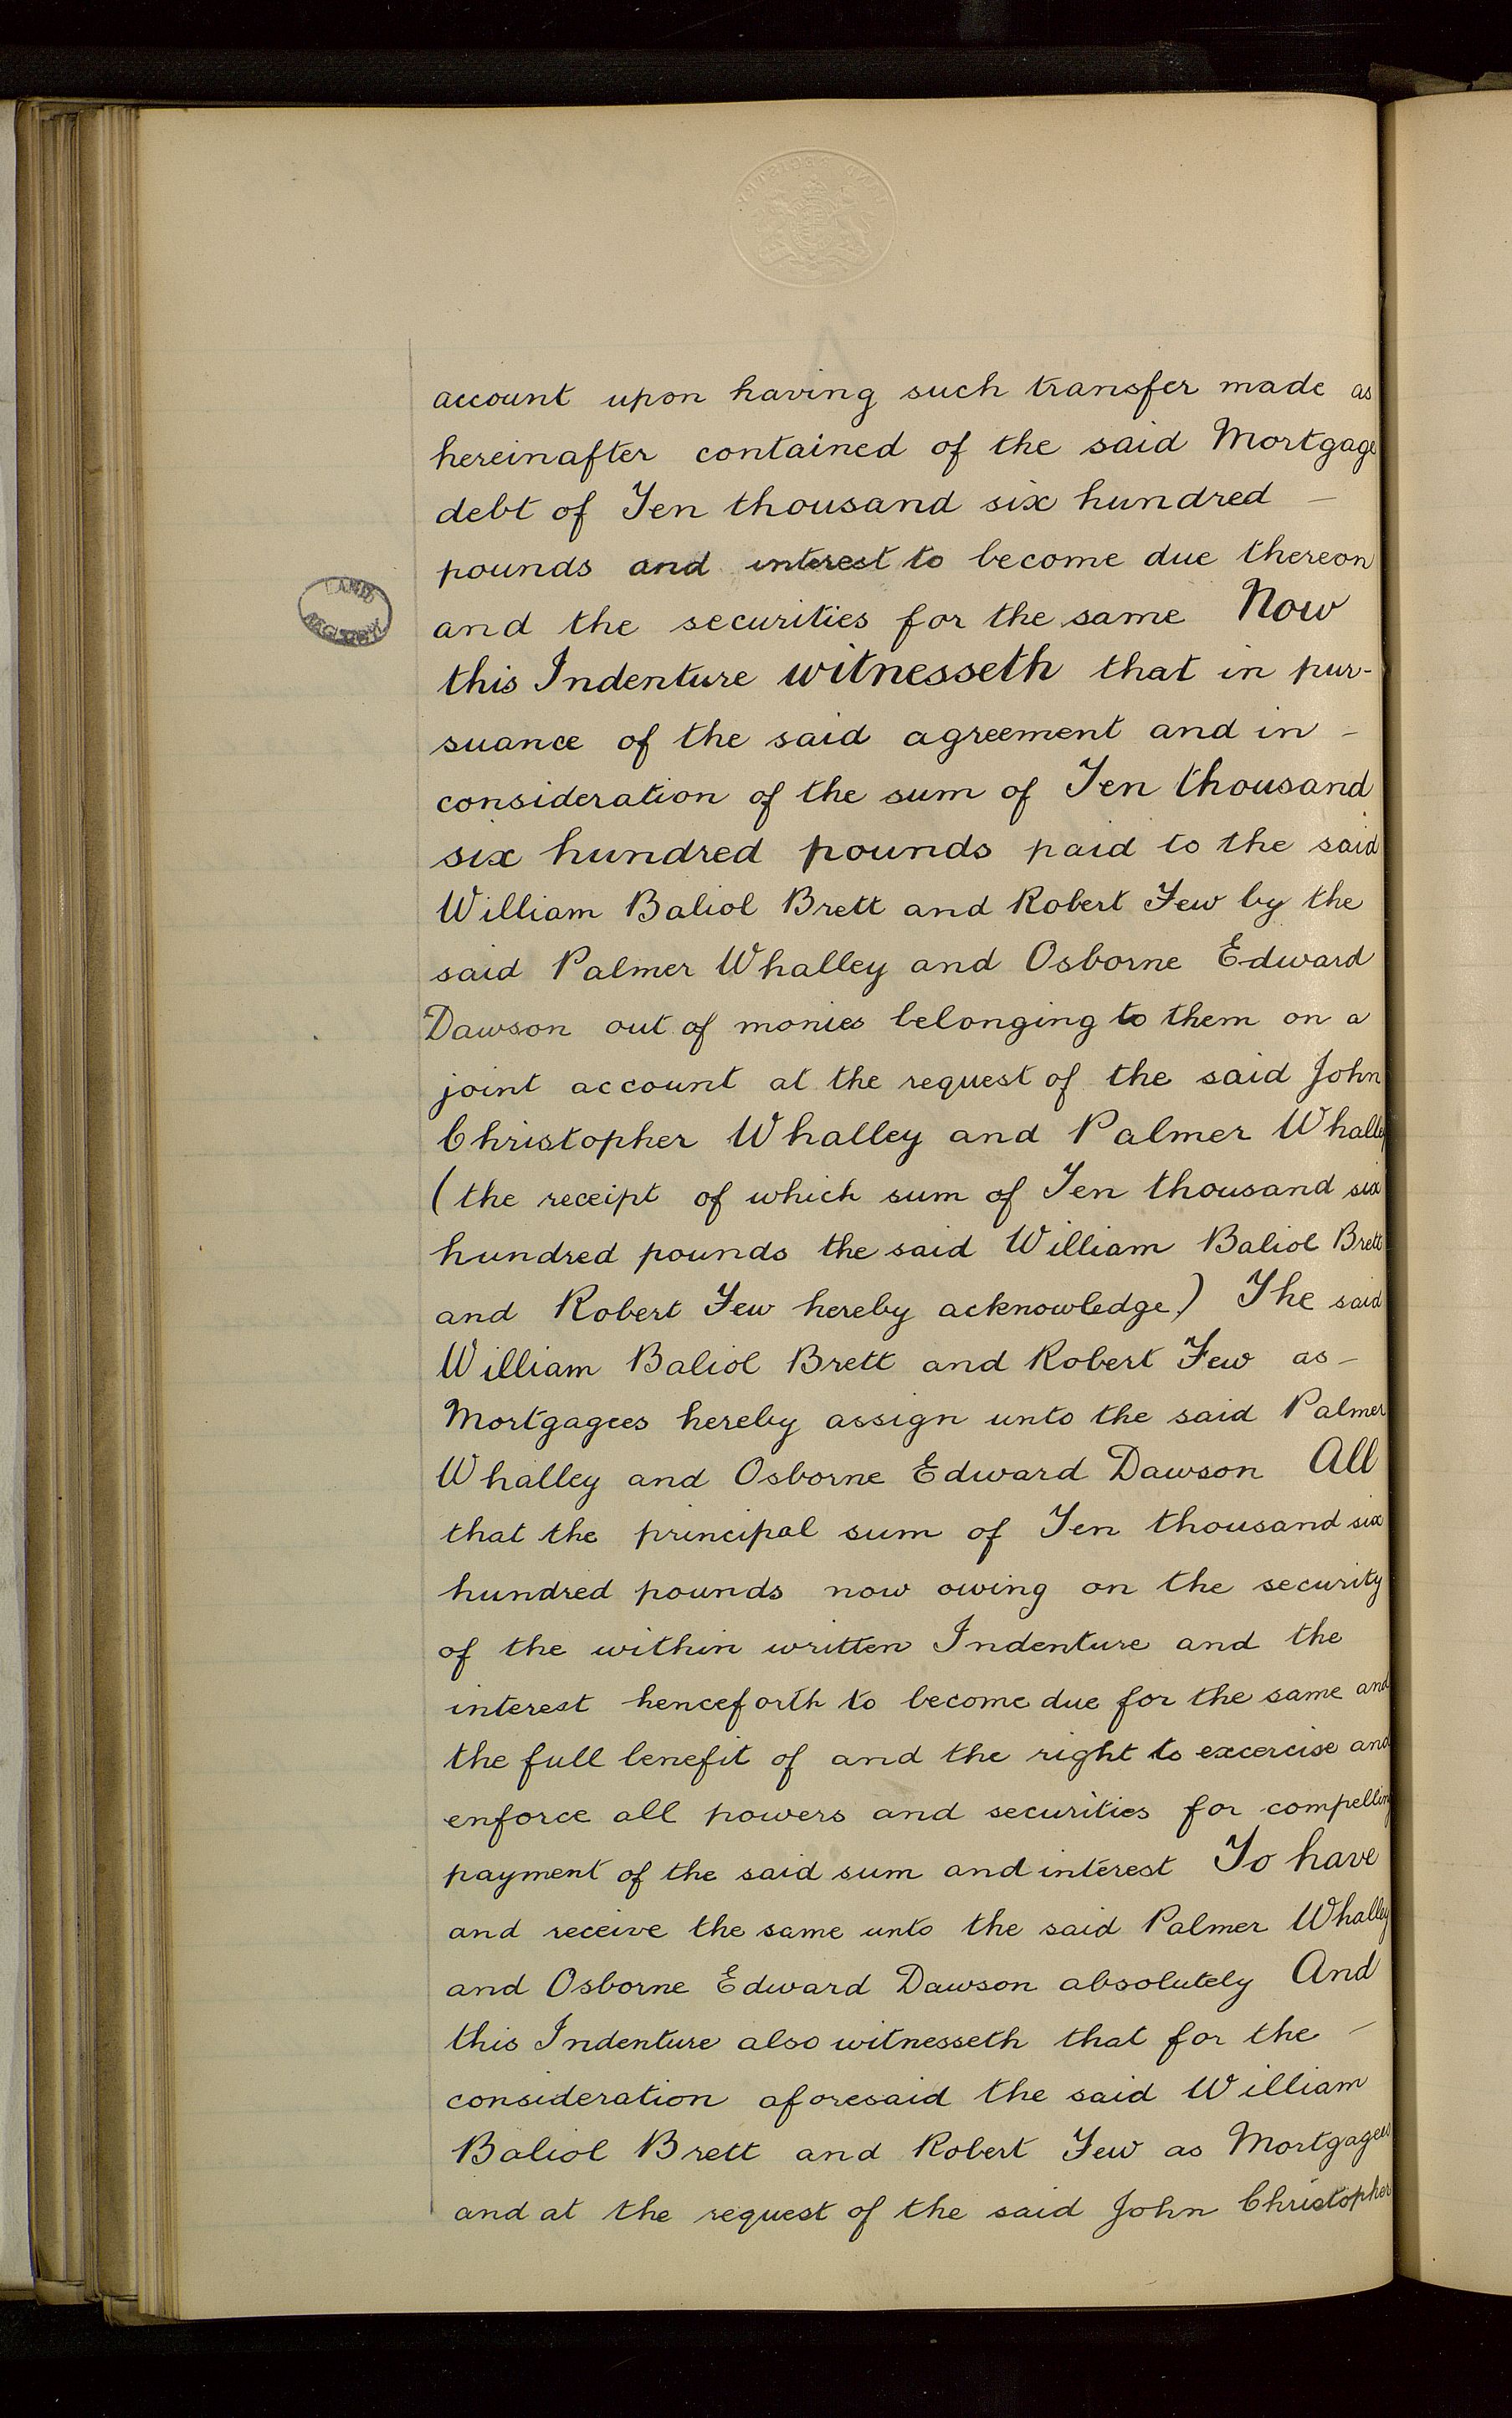 LAND REGISTRY
account upon having such transfer made as
hereinafter contained of the said Mortgage
debt of Ten thousand six hundred —
pounds and interest to become due thereon
and the securities for the same Now
this Indenture witnesseth that in pur-
suance of the said agreement and in -
consideration of the sum of Ten thousand
six hundred pounds paid to the said
William Baliol Brett and Robert Few by the
said Palmer Whalley and Osborne Edward
Dawson out of monies belonging to them on a
joint account at the request of the said John
Christopher Whalley and Palmer Whalley
(the receipt of which sum of Ten thousand six
hundred pounds the said William Baliol Brett
and Robert Few hereby acknowledge) The said
William Baliol Brett and Robert Few as -
Mortgagees hereby assign unto the said Palmer
Whalley and Osborne Edward Dawson All
that the principal sum of Ten thousand six
hundred pounds now owing on the security
of the within written Indenture and the
interest henceforth to become due for the same and
the full benefit of and the right to excercise and
enforce all powers and securities for compelling
payment of the said sum and interest To have
and receive the same unto the said Palmer Whalley
and Osborne Edward Dawson absolutely And
this Indenture also witnesseth that for the -
consideration aforesaid the said William
Baliol Brett and Robert Few as Mortgagees
and at the request of the said John Christopher
LAND REGISTRY